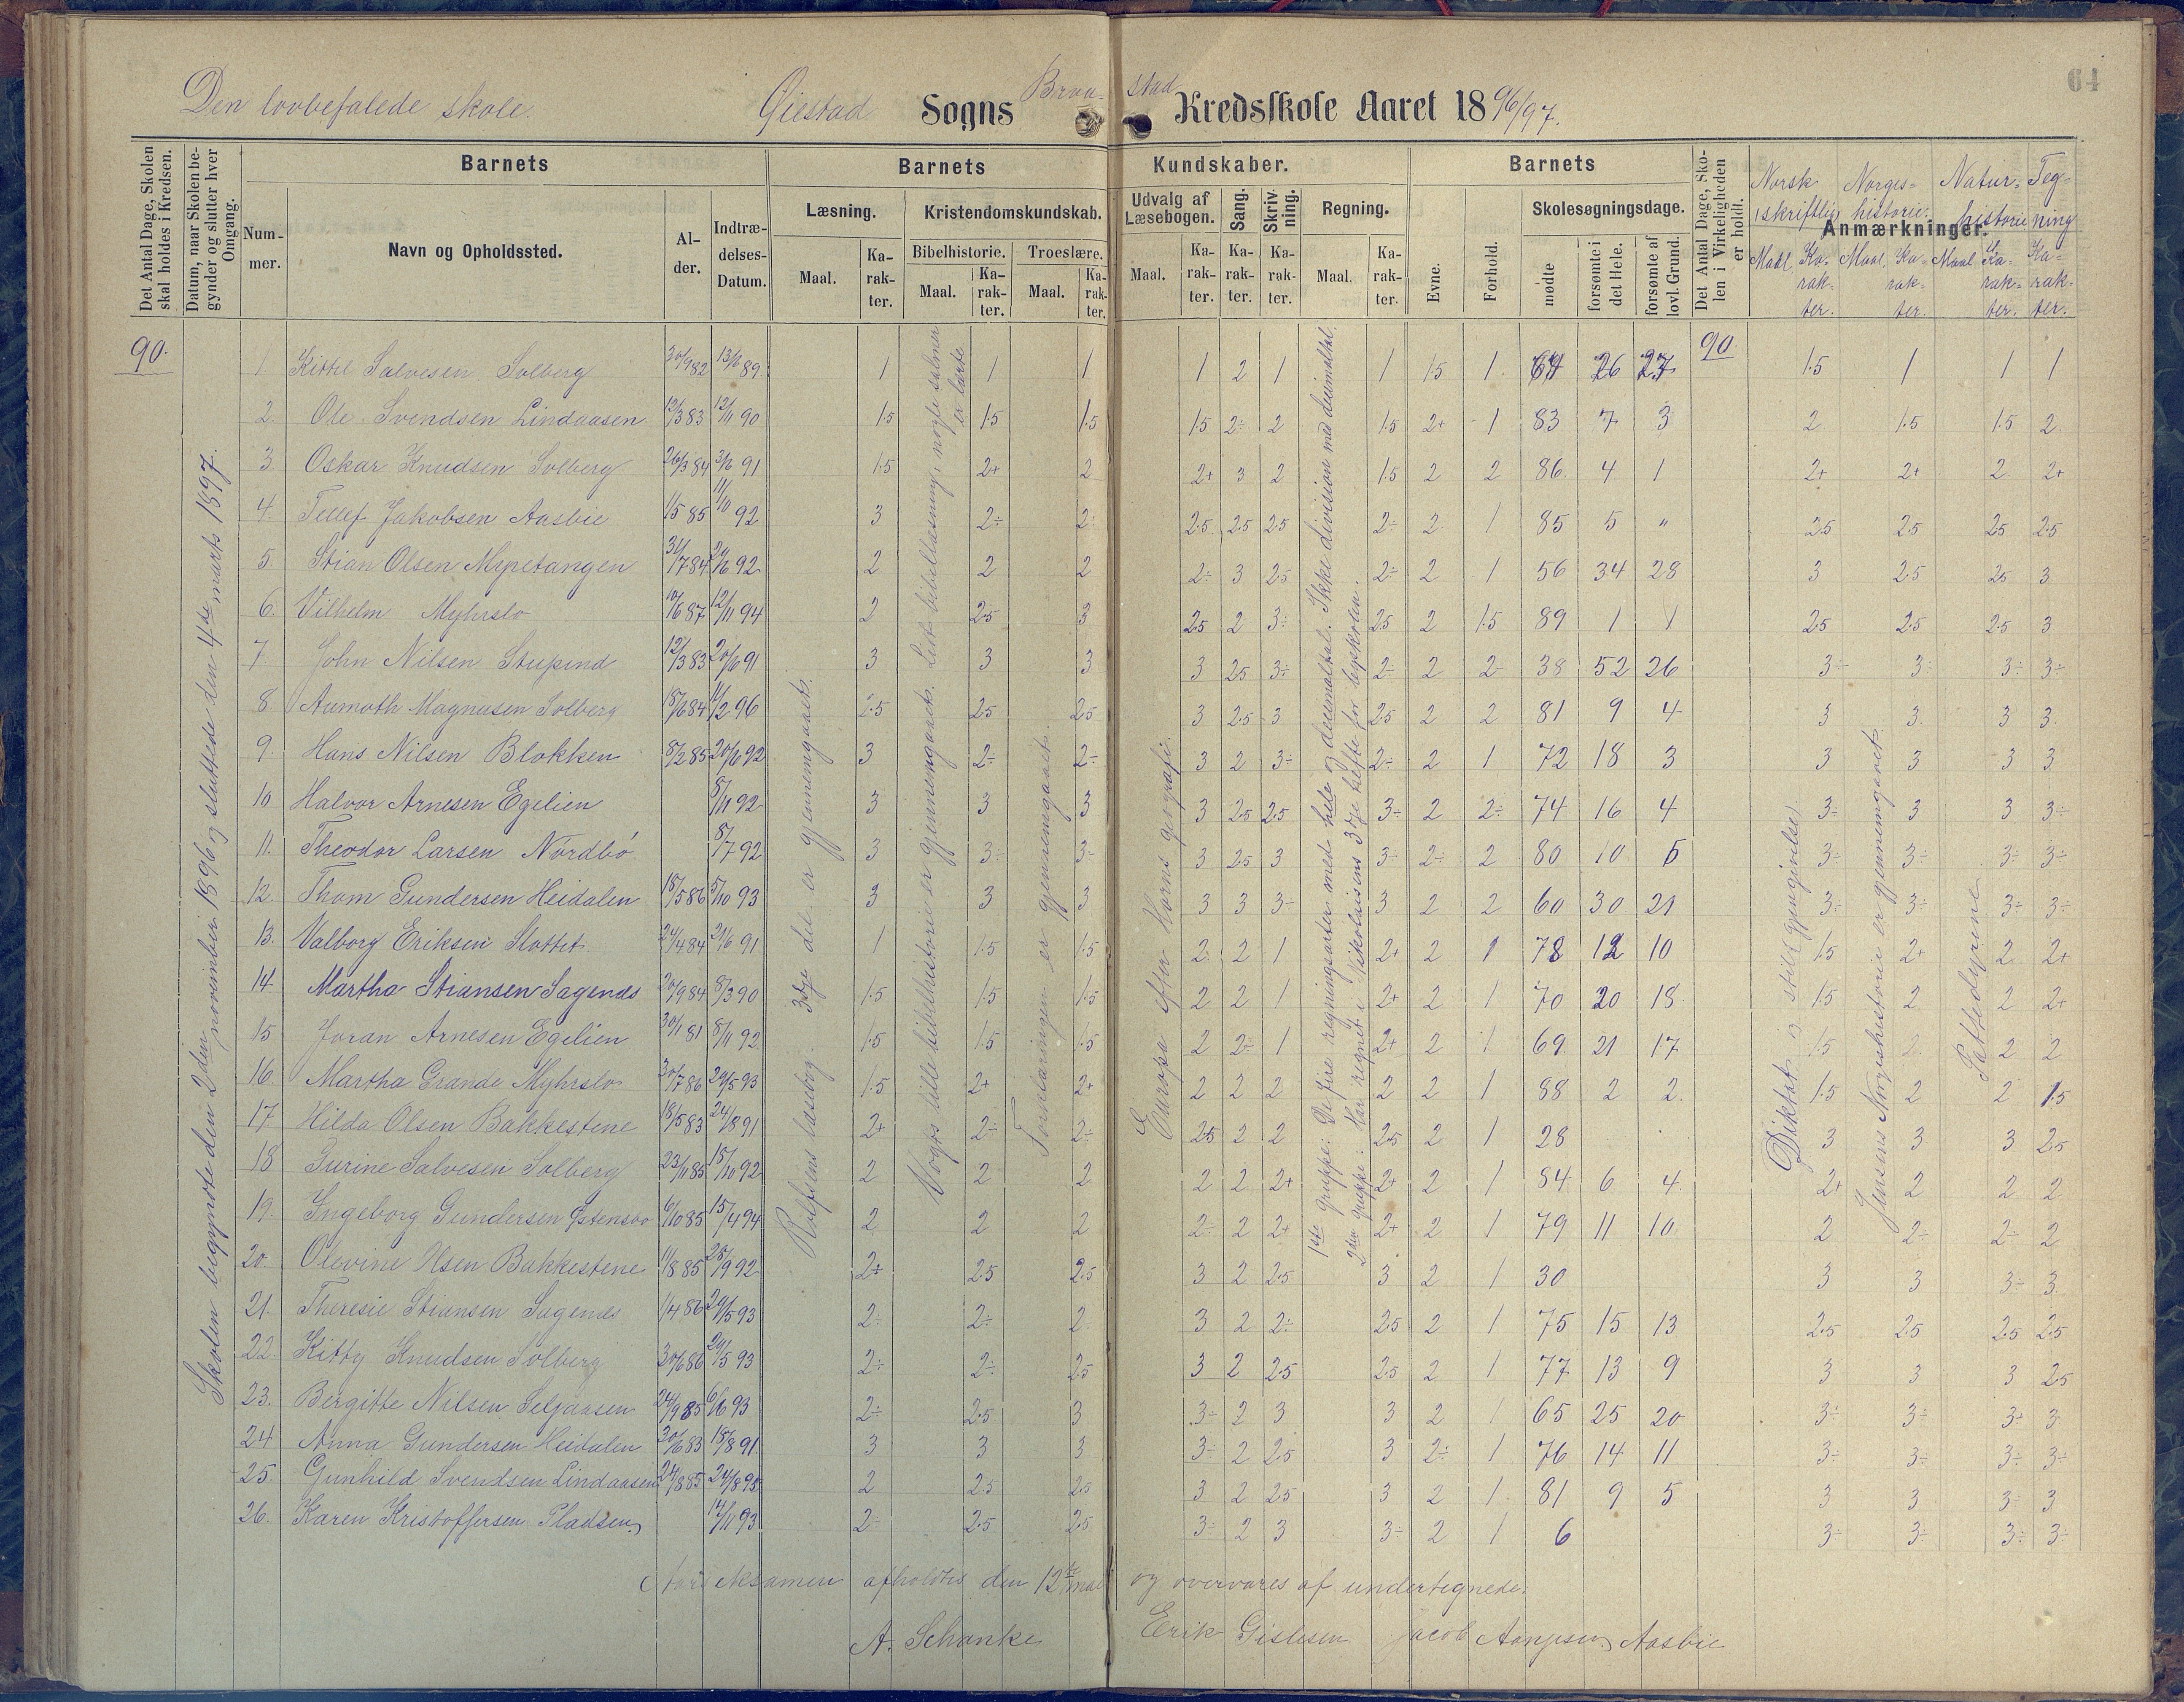 64
Den lovbefalede skole. Øiestad Sogns Braastad Kredsskole Aaret 1896/97.
Det Antal Dage, Skolen skal holdes i Kredsen.
Datum, naar Skolen begynder og slutter hver Omgang.
Barnets
Nummer.
Navn og Opholdssted.
Alder.
Indtrædelses-Datum.
Barnets Kundskaber.
Læsning.
Maal.
Karakter.
Kristendomskundskab.
Bibelhistorie.
Maal.
Karakter.
Troeslære.
Maal.
Karakter.
Udvalg af Læsebogen.
Maal.
Karakter.
Sang.
Karakter.
Skrivning.
Karakter.
Regning.
Maal.
Karakter.
Barnets
Evne.
Forhold.
Skolesøgningsdage.
mødte
forsømte i det Hele.
forsømte af lovl. Grund.
Det Antal Dage, Skolen i Virkeligheden er holdt.
Anmærkninger.
Norsk skriftlig Maal Karakter.
Norgeshistorie. Maal. Karakter.
Naturhistorie Maal Karakter.
Tegning Karakter.
90.
Skolen begyndte den 2den november 1896 og sluttede den 4de marts 1897.
Rolfsens læsebog 3dje del er gjennemgaaet.
Vogts lille bibelhistorie er gjennemgaaet. Lidt bibellæsning, nogle salmer er lærte
Forklaringen er gjennemgaaet.
Europa efter Horns geografi.
1ste gruppe: De fire regningsarter med hele og decimaltal. Ikke division med decimaltal.
2den gruppe: Har regnet i Nikolaisens 3dje hefte for byskolen.
Diktat og stil (gjengivelse)
Jensens Norgeshistorie er gjennemgaaet
Pattedyrene
90
1 Kittil Salvesen Solberg 30/9 82 13/6 89 1 1 1 1 2 1 1 1.5 1 64 26 27 1.5 1 1 1
2. Ole Svendsen Lindaasen 12/3 83 12/11 90 1.5 1.5 1.5 1.5 2÷ 2 1.5 2+ 1 83 7 3 2 1.5 1.5 2
3 Oskar Knudsen Solberg 26/3 84 3/6 91 1.5 2+ 2 2+ 3 2 1.5 2 2 86 4 1 2+ 2+ 2 2+
4. Tellef Jakobsen Aasbie 1/5 85 11/10 92 3 2÷ 2÷ 2.5 2.5 2.5 2÷ 2 1 85 5 " 2.5 2.5 2.5 2.5
5. Stian Olsen Myretangen 31/7 84 29/6 92 2 2 2 2÷ 3 2.5 2÷ 2 1 56 34 28 3 2.5 2.5 3
6. Vilhelm Myhrslo 10/6 87 12/11 94 2 2.5 3 2.5 2 3÷ 2.5 2 1.5 89 1 1 2.5 2.5 2.5 3
7 John Nilsen Stupind 12/3 83 20/6 91 3 3 3 3 2.5 3÷ 2÷ 2 2 38 52 26 3÷ 3÷ 3÷ 3÷
8 Aumoth Magnusen Solberg 18/6 84 11/2 96 2.5 2.5 2.5 3 2.5 3 2.5 2 2 81 9 4 3 3. 3 3.
9. Hans Nilsen Blokken 8/2 85 20/6 92 3 2÷ 2÷ 3 2 3÷ 2÷ 2 1 72 18 3 3 3 3 3
10 Halvor Arnesen Egelien 8/11 92 3 3 3 3 2.5 2.5 3÷ 2 2÷ 74 16 4 3÷ 3 3 3÷
11. Theodor Larsen Nordbö 8/7 92 3 3÷ 3÷ 3 2.5 3 3÷ 2÷ 2 80 10 5 3÷ 3÷ 3÷ 3÷
12. Thom Gundersen Heidalen 18/5 86 5/10 93 3 3 3 3 3 3÷ 3 2 2 60 30 21 3÷ 3÷ 3÷ 3÷
13. Valborg Eriksen Slottet 24/4 84 21/6 91 1 1.5 1.5 2 2 1 2+ 2 1 78 12 10 1.5 2+ 2 2+
14. Martha Stiansen Sagenes 20/9 84 8/3 90 1.5 1.5 1.5 2 2 1 2+ 2 1 70 20 18 1.5 2 2 2+
15 Joran Arnesen Egelien 30/1 81 8/11 92 1.5 1.5 1.5 2 2÷ 1 2+ 2 1 69 21 17 1.5 2 2 2
16. Martha Grande Myhrslo 30/7 86 29/5 93 1.5 2+ 2+ 2 2 2 2 2 1 88 2 2. 1.5 2 2 1.5
17 Hilda Olsen Bakkestene 18/5 83 24/8 91 2+ 2÷ 2÷ 2.5 2 2 2.5 2 1 28 3 3 3 2.5
18 Gurine Salvesen Solberg 23/11 85 15/10 92 2 2 2 2 2 2+ 2+ 2 1 84 6 4 2+ 2 2 2
19. Ingeborg Gundersen Østensbo 6/10 85 15/4 94 2 2 2 2÷ 2 2+ 2+ 2 1 79 11 10 2 2÷ 2÷ 2
20. Olevine Olsen Bakkestene 11/8 85 28/9 92 2+ 2.5 2.5 3 2 2.5 3 2 1 30 3 3 3÷ 3.
21. Theresie Stiansen Sagenes 1/4 86 29/5 93 2÷ 2÷ 2. 3 2 2÷ 2.5 2 1 75 15 13 2.5 2.5 2.5 2.5
22. Kitty Knudsen Solberg 30/6 86 29/5 93 2÷ 2÷ 2.5 3 2 2.5 2.5 2 1 77 13 9 3 3 3 2.5
23. Bergitte Nilsen Seljaasen 24/9 85 6/6 93 2÷ 2.5 3 3÷ 2 3 3 2 1 65 25 20 3÷ 3÷ 3÷ 3
24 Anna Gundersen Heidalen 30/6 83 18/8 91. 3 3 3 3÷ 2 2.5 3 2÷ 1 76 14 11 3÷ 3÷ 3÷ 3÷
25. Gunhild Svendsen Lindaasen 24/8 85 24/8 95 2 2.5 2.5 3 2 2.5 3 2 1 81 9 5 3 3 3÷ 3
26. Karen Kristoffersen Pladsen 14/11 93 2÷ 2.5 2.5 3÷ 2 3 3÷ 2 1 6 3÷ 3÷ 3÷ 3÷
eksamen afholdtes den 12te mai og overvares af undertegnede.
A. Schanke Erik Gislesen Jacob Aasbie